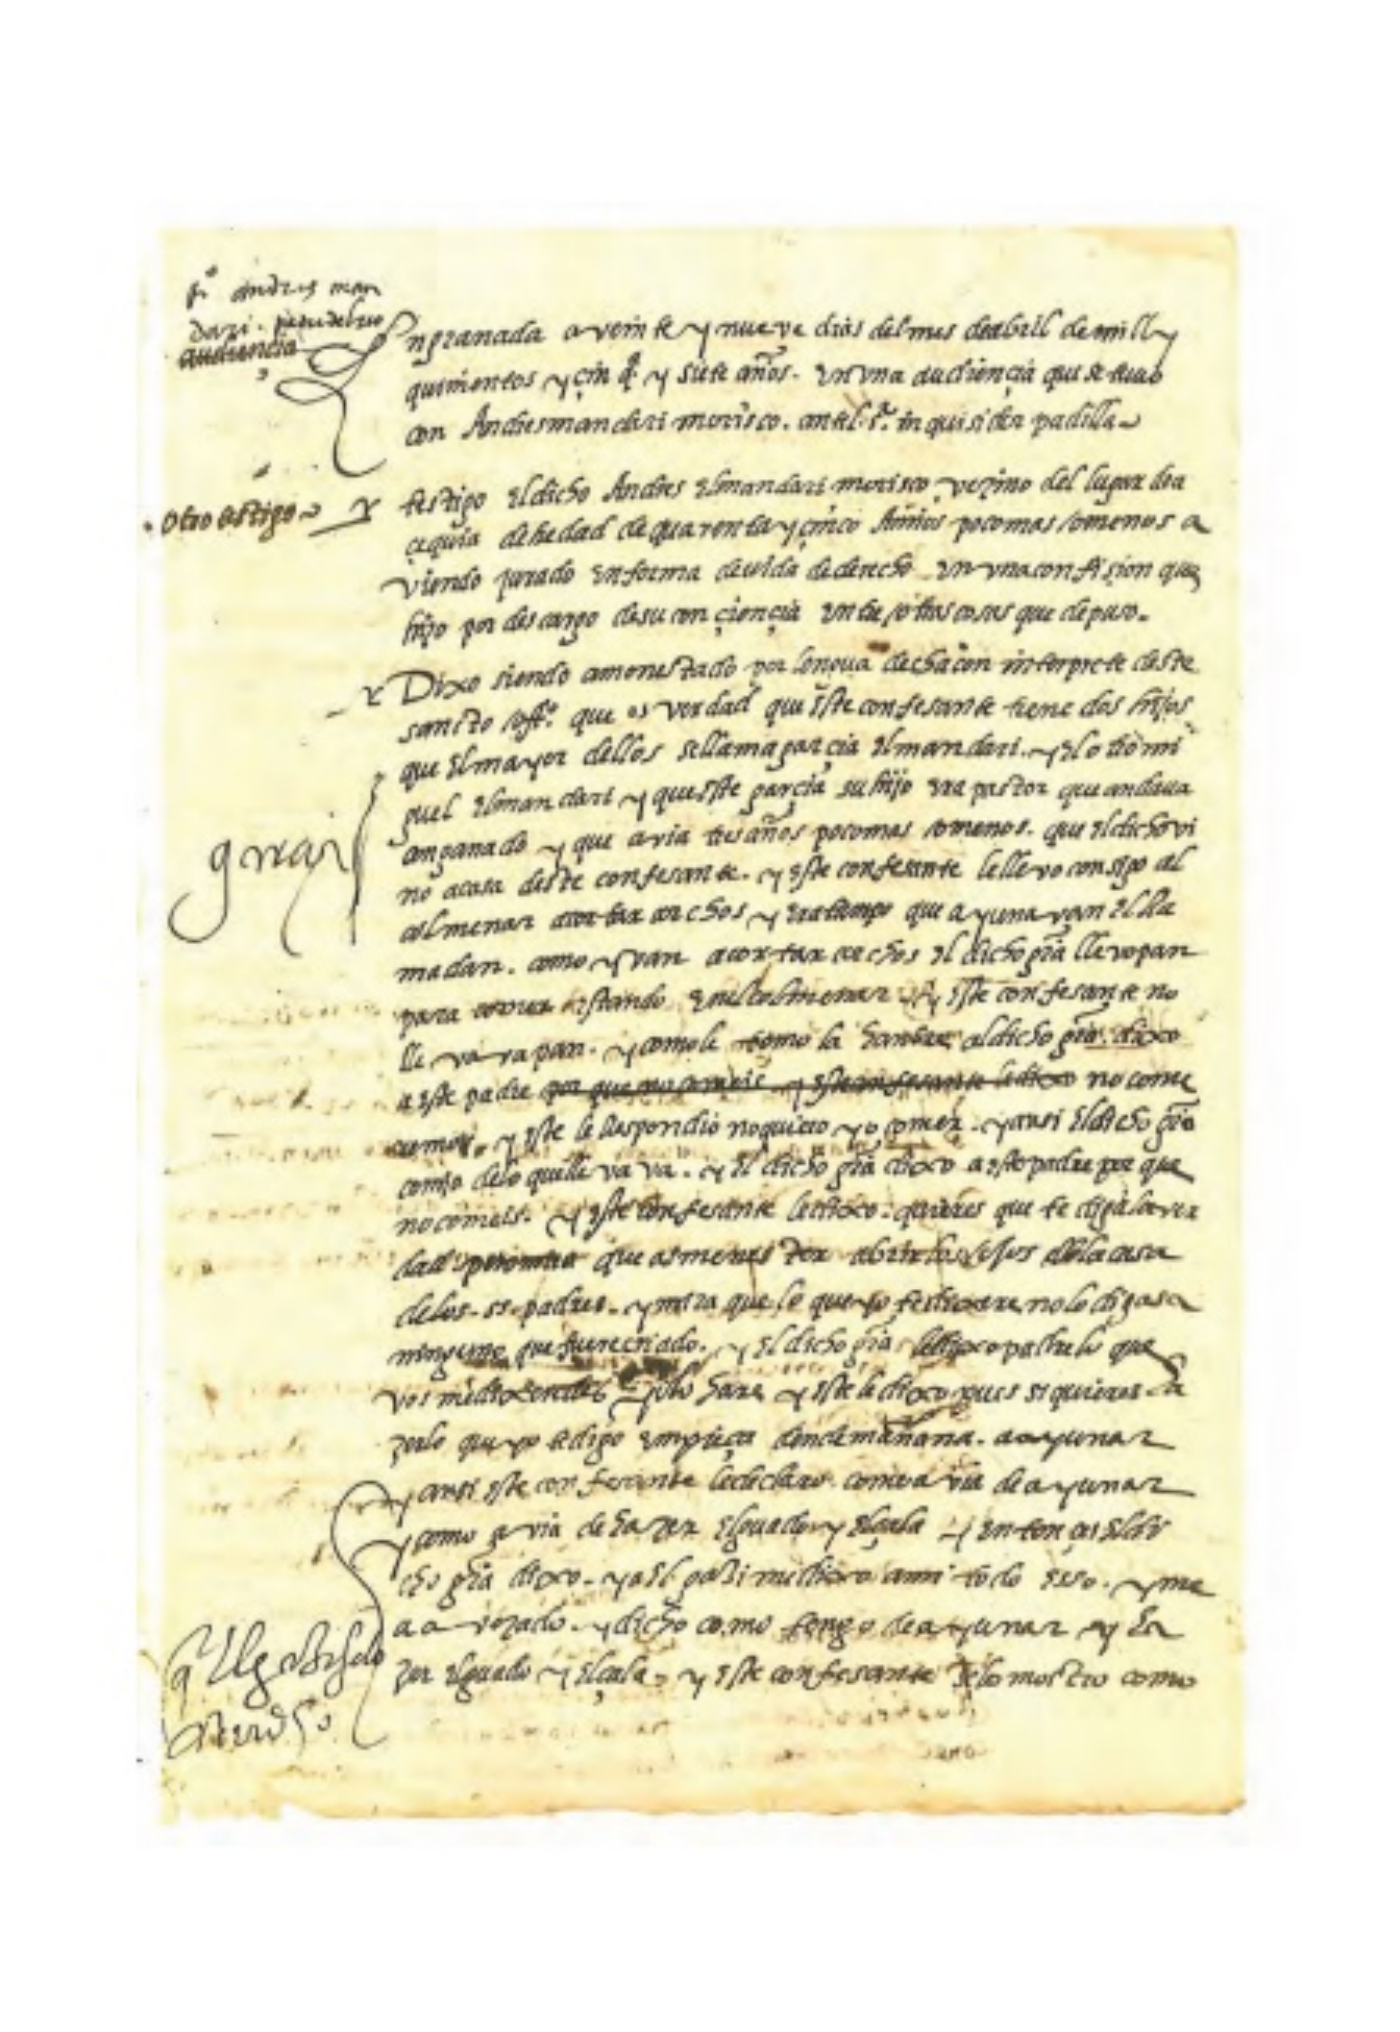 andres man
dari.
audiencia
En granada a veinte y nueve dias del mes de abril de mill y
quinientos y çinqta y siete años. en una audiençia que se tuvo
con Andres mandari morisco. ante l sr. inquisidor padilla
otro testigo
testigo El dicho Andres Elmandari morisco vezino del lugar de a
çequia de hedad de quarenta y çinco Años poco mas o menos a
viendo jurado en forma devida de derecho en una confision que
hizo por descargo de su conçiençia entre otras cosas que depuso.
Dixo siendo amonestado por lengua de chacon interprete deste
sancto offo. que es verdad que este confesante tiene dos hijos
que El mayor dellos se llama garçia Elmandari. y El otro mi
guel Elmandari y que este garçia su hijo era pastor que andava
con ganado y que avia tres años poco mas o menos. que El dicho vi
no a casa deste confesante. y este confesante le llevo consigo al
colmenar a cortar y era tiempo que ayunavan El Ra
madan. como yvan a cortar El dicho gra llevo pan
para comer estando en El colmenar y este confesante no
llevava pan. y como le tomo la hanbre al dicho gra. dixo
a este padre por que no comeis y este confesante le dixo no come
y este le Respondio no quiero yo comer. y ansi El dicho gra
comio de lo que llevava. y El dicho gra dixo a este padre por que
no comeis. y este confesante le dixo. quieres que te diga la ver
dad que as menester abrir los ojos a la casa
de los padres. y mira que lo que yo te dixere no lo digas a
ninguno y El dicho gra le dixo padre lo que
vos me dixeredes yo lo hare y este le dixo pues si quieres ha
zerlo que yo te digo empieça dende mañana. a ayunar
y ansi este confesante le declaro como avia de ayunar
y como avia de hazer El guado y El çala y entonçes El di
cho gra dixo. ya El me dixo a mi todo eso. y me
a avezado. y dicho como tengo de ayunar y ha
zer El guado y El çala. y este confesante se lo mostro como